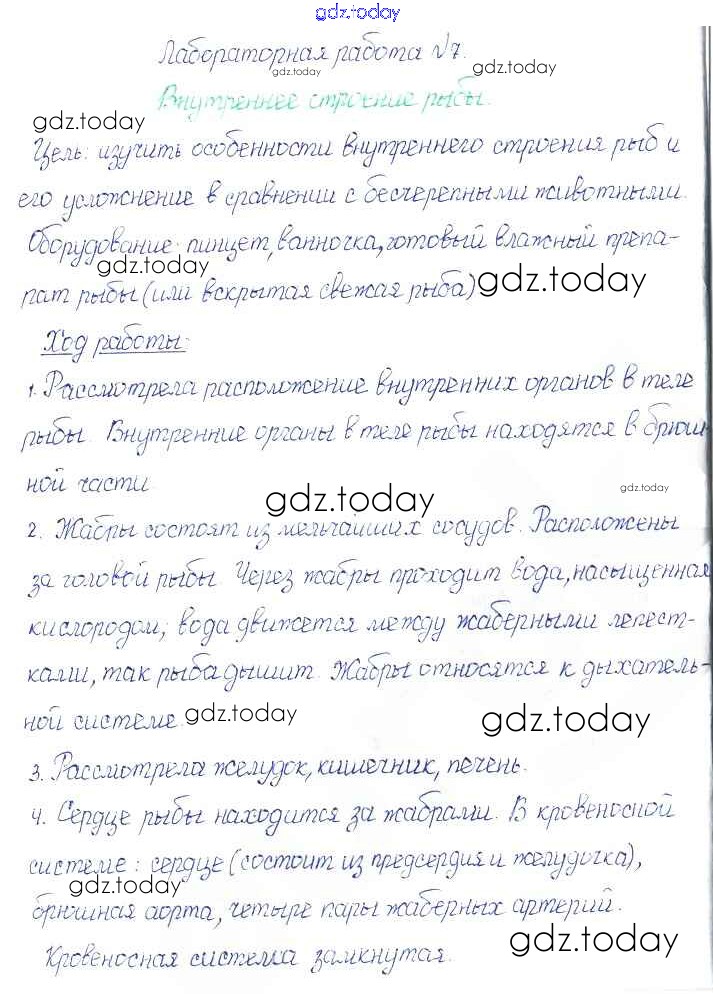 gdz.today
Лабораторная работа №7.
gdz.today
gdz.today
Внутреннее строение рыбы.
gdz.today
Цель: изучить особенности внутреннего строения рыб и
его усложнение в сравнении с бесчерепными животными.
Оборудование: пинцет, ванночка, готовый влажный препа-
gdz.today
gdz.today
рат рыбы (или вскрытая свежая рыба)
Ход работы:
1. Рассмотрела расположение внутренних органов в теле
рыбы. Внутренние органы в теле рыбы находятся в брюш-
ной части.
gdz.today
gdz.today
2. Жабры состоят из мельчайших сосудов. Расположены
за головой рыбы. Через жабры проходит вода, насыщенная
кислородом; вода движется между жаберными лепест-
ками, так рыба дышит. Жабры относятся к дыхатель-
ной системе.
gdz.today
gdz.today
3. Рассмотрела желудок, кишечник, печень.
4. Сердце рыбы находится за жабрами. В кровеносной
системе: сердце (состоит из предсердия и желудочка),
gdz.today
брюшная аорта, четыре пары жаберных артерий.
gdz.today
Кровеносная система замкнутая.